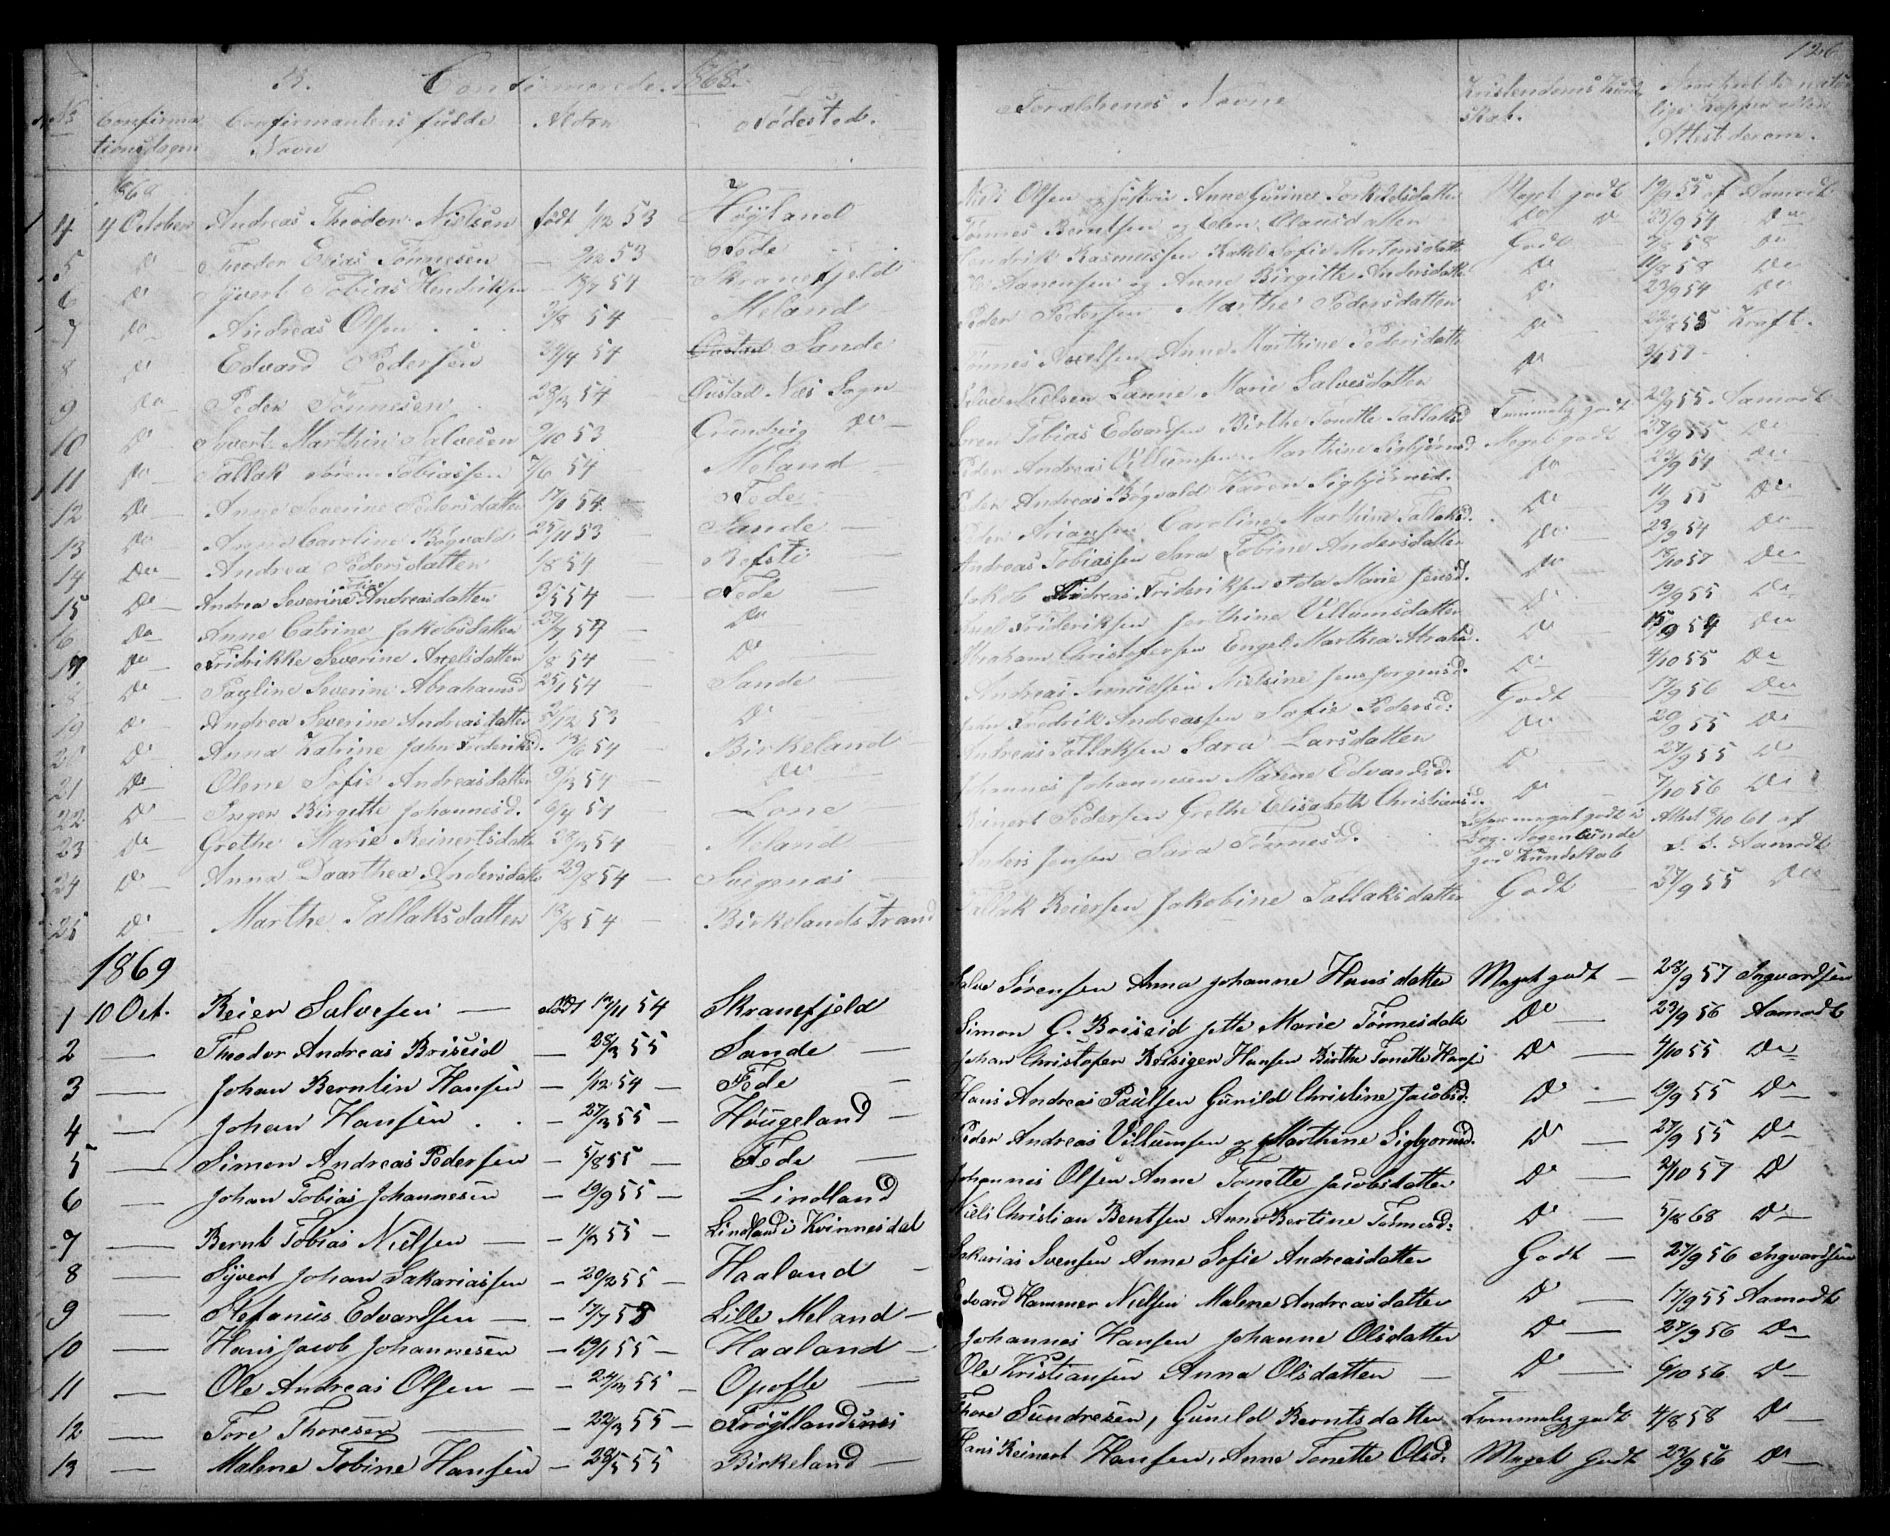 126
B. Confirmerede. 1868.
No Confirmationsdagen Confirmantens fulde Navn Alder Fødested. Forældrenes Navne Kristendoms Kundskab. Attest derom.
1868
4 4 October Andreas Theodor Nielsen født 1/12 53 Høyland Olsen Anne Gurine Torkildsdatter Meget godt 19/9 55 af Aamodt
5 Do Theodor Elias Tønnesen 9/12 53 Fede Tønnes Berntsen og Elen Olausdatter Do Do 23/9 54 Do
6 Do Syvert Tobias Hendriksen 18/7 54 Skranefjeld Hendrik Rasmussen Rakel Sofie Mortensdatter Godt 7/8 58 Do
7 Do Andreas Olsen 3/8 54 Meland Ole Aanensen og Anne Birgitte Andersdatter Do 11/8 58 Do
8 Do Edvard Pedersen 29/4 54 Sande Peder Pedersen Marthe Pedersdatter Do 23/9 54 Do
9 Do Peder Tønnesen 28/3 54 Øustad Næs Sogn Tønnes Axelsen Anne Marthine Pedersdatter Do 22/8 55 Kraft.
10 Do Syvert Marthin Salvesen 9/10 53 Grundvig Do Salve Nielsen Lanne Marie Salvesdatter Do 3/1 57
11 Do Tallak Søren Tobiassen 7/6 54 Meland Søren Tobias Edvardsen Birthe Tonette Tallaksd Temmelig godt 29/9 55 Aamodt
12 Do Anne Severine Pedersdatter 17/1 54 Fede Peder Andreas Villumsen Marthine Sigbjørnsd Meget godt 27/9 55 Do
13 Do Anne Caroline Bøgvald 25/11 53 Sande Peder Andreas Bøgvald Karen Sigbjørnsd. Do 23/9 54 Do
14 Do Andrea Pedersdatten 1/8 54 Refsti Peder Ariansen Caroline Marthine Tallaksd. Do 11/9 55 Do
15 Do Andrea Severine Tine Andreasdatten 3/5 54 Fede Andreas Tobiassen Sara Tobine Andersdatter Do 23/9 54 Do
16 Do Anne Catrine Jakobsdatten 29/7 54 Do Jakob Andreas Frideriksen Ada Marie Jensd. Do 18/10 57 Do
17 Do Fridrikke Severine Axelsdatten 1/8 54 Do Axel Frideriksen Jorthine Villumsdatter Do 19/9 55 Do
18 Do Pauline Severine Abrahamsd 25/1 54 Sande Abraham Christofersen Engel Marthea Abrahd. Do 15/9 54 Do
19 Do Andrea Severine Andreasdatter 2/12 53 Do Andreas Samuelsen Nielsine Jensjorgensd. Do 4/10 55 Do
20 Do Anna Katrine Jahn Frederiksd. 13/6 54 Birkeland Jan Fredrik Andreassen Sofie Pedersd. Godt 17/9 56 Do
21 Do Olene Sofie Andreasdatter 9/3 54 Do Andreas Tallaksen Sara Larsdatten Do 20/9 55 Do
22 Do Inger Birgitte Johannesd. 6/4 54 Lone Johannes Johannesen Malene Edvardsd. Do 27/9 55 Do
23 Do Grethe Marie Reinertsdatter 28/3 54 Meland Reinert Pedersen Grethe Elisabeth Christiansd. Do 7/10 56 Do
24 Do Anna Daarthea Andersdatte 29/8 54 Svigenæs Anders Jensen Sara Tønnesd. Læser meget godt i Bog. Nogenlunde god Kundskab Attest 6/10 61 af S. S. Aamodt
25 Do Marthe Tallaksdatten 13/8 54 Birkelands strand Tallak Reiersen Jakobine Tallaksdatter Godt 27/9 55 Do
1869
1 10 Oct. Reier Salvesen født 12/11 54 Skranefjeld Salve Sørensen Anna Johanne Hansdatter Meget godt 28/9 57 Ingvardsen
2 Theodor Andreas Briseid 28/3 55 Sande Simon G. Briseid Jette Marie Tønnesdatte Do 23/9 56 Aamodt
3 Johan Berntin Hansen 1/12 54 Fede Johan Christofer Krisiger Hansen Birthe Tonette Hansd Do 4/10 55 Do
4 Johan Hansen 27/3 55 Høugeland Hans Andreas Paulsen Gunild Christine Jacobsd: Do 19/9 55 Do
5 Simon Andreas Pedersen 5/8 55 Fede Peder Andreas Villumsen og Marthine Sigbjørnsd. Do 27/9 55 Do
6 Johan Tobias Johannesen 19/9 55 Lindland Johannes Olsen Anne Tonette Jacobsdatter Do 2/10 57 Do
7 Bernt Tobias Nielsen 11/3 55 Lindland i Kvinnesdal Niels Christian Bentsen Anne Bertine Tønnesd: Do 5/8 68 Do
8 Syvert Johan Sakariassen 20/2 55 Haaland Sakarias Svensen Anne Sofie Andreasdatter Godt 27/9 56 Ingvardsen
9 Stefanus Edvardsen 17/7 55 Lille Meland Edvard Hammer Nielsen Malene Andreasdatter Do 17/9 55 Aamodt
10 Hans Jacob Johannesen 19/1 55 Haaland Johannes Hansen Johanne Olsdatter Do 27/9 56 Do
11 Ole Andreas Olsen 24/3 55 Opofte Ole Kristiansen Anna Olsdatten Do 6/10 56 Do
12 Tore Thoresen 22/3 55 Frøytlandsnes Thore Sundresen, Gunild Berntsdatten Temmelig godt 4/8 58 Do
13 Malene Tobine Hansen 28/5 55 Birkeland Hans Reinert Hansen, Anne Tonette Olsd: Meget Godt 23/9 56 Do